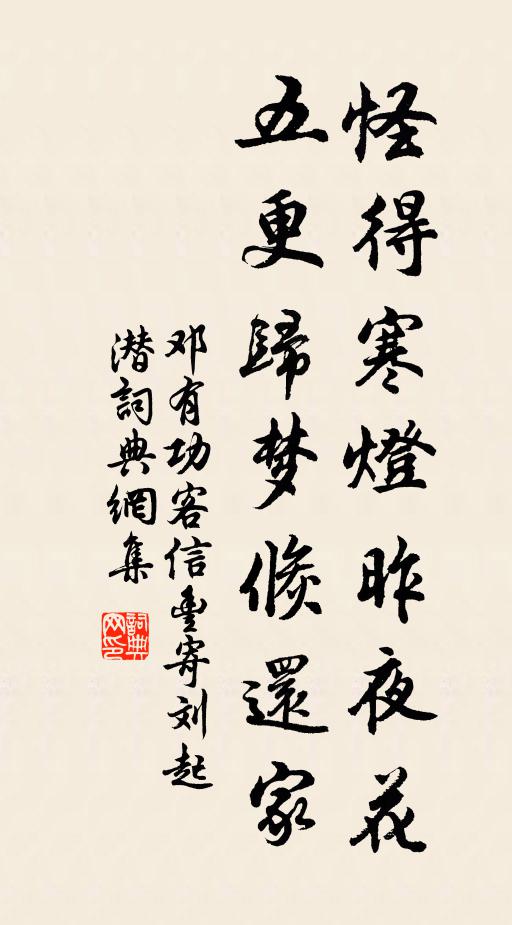 怪得寒燈昨夜花
五更歸梦倐還家
邓有功客信豊寄刘起
潜詞典網集
詞典网印